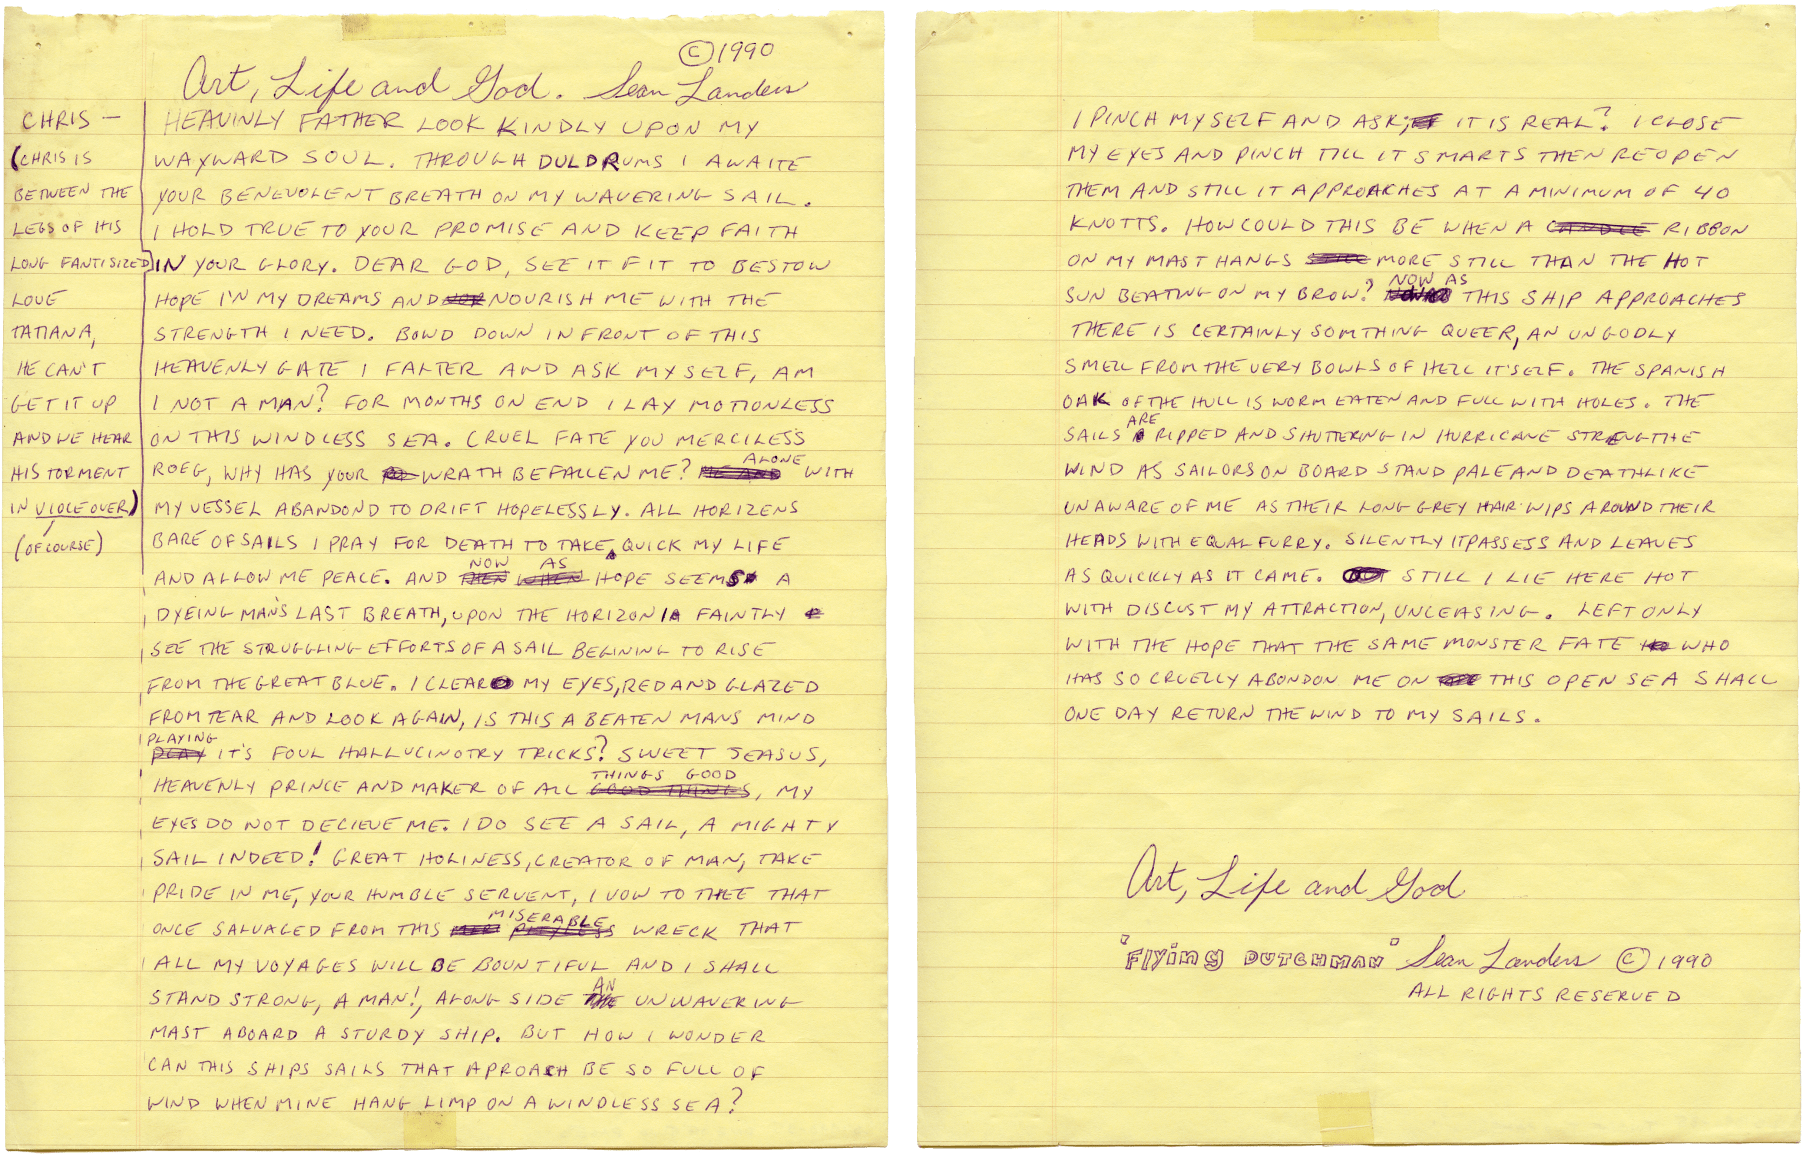 ©1990
Art, Life and God. Sean Landers
CHRIS —
(CHRIS IS
BETWEEN THE
LEGS OF HIS
LONG FANTISIZED
LOVE
TATIANA,
HE CAN'T
GET IT UP
AND WE HEAR
HIS TORMENT
IN VIOCE OVER)
(OF COURSE)
HEAVINLY FATHER LOOK KINDLY UPON MY
WAYWARD SOUL. THROUGH DULDRUMS I AWAITE
YOUR BENEVOLENT BREATH ON MY WAVERING SAIL.
I HOLD TRUE TO YOUR PROMISE AND KEEP FAITH
IN YOUR GLORY. DEAR GOD, SEE IT FIT TO BESTOW
HOPE I'N MY DREAMS AND NOURISH ME WITH THE
STRENGTH I NEED. BOWD DOWN IN FRONT OF THIS
HEAVENLY GATE I FALTER AND ASK MYSELF, AM
I NOT A MAN? FOR MONTHS ON END I LAY MOTIONLESS
ON THIS WINDLESS SEA. CRUEL FATE YOU MERCILESS
ROEG, WHY HAS YOUR WRATH BEFALLEN ME? ALONE WITH
MY VESSEL ABANDOND TO DRIFT HOPELESSLY. ALL HORIZENS
BARE OF SAILS I PRAY FOR DEATH TO TAKE QUICK MY LIFE
AND ALLOW ME PEACE. AND NOW AS HOPE SEEMS A
DYEING MAN'S LAST BREATH, UPON THE HORIZON I FAINTLY
SEE THE STRUGGLING EFFORTS OF A SAIL BEGINING TO RISE
FROM THE GREAT BLUE. I CLEAR MY EYES, RED AND GLAZED
FROM TEAR AND LOOK AGAIN, IS THIS A BEATEN MANS MIND
PLAYING IT'S FOUL HALLUCINOTRY TRICKS? SWEET JEASUS,
HEAVENLY PRINCE AND MAKER OF ALL THINGS GOOD, MY
EYES DO NOT DECIEVE ME. I DO SEE A SAIL, A MIGHTY
SAIL INDEED! GREAT HOLINESS, CREATOR OF MAN, TAKE
PRIDE IN ME, YOUR HUMBLE SERVENT, I VOW TO THEE THAT
ONCE SALVAGED FROM THIS MISERABLE WRECK THAT
ALL MY VOYAGES WILL BE BOUNTIFUL AND I SHALL
STAND STRONG, A MAN!, ALONG SIDE AN UNWAVERING
MAST ABOARD A STURDY SHIP. BUT HOW I WONDER
CAN THIS SHIPS SAILS THAT APROACH BE SO FULL OF
WIND WHEN MINE HANG LIMP ON A WINDLESS SEA?
I PINCH MYSELF AND ASK, IT IS REAL? I CLOSE
MY EYES AND PINCH TILL IT SMARTS THEN REOPEN
THEM AND STILL IT APPROACHES AT A MINIMUM OF 40
KNOTTS. HOW COULD THIS BE WHEN A CANDLE RIBBON
ON MY MAST HANGS MORE STILL THAN THE HOT
SUN BEATING ON MY BROW? NOW AS THIS SHIP APPROACHES
THERE IS CERTAINLY SOMTHING QUEER, AN UNGODLY
SMELL FROM THE VERY BOWLS OF HELL IT'SELF. THE SPANISH
OAK OF THE HULL IS WORM EATEN AND FULL WITH HOLES. THE
SAILS ARE RIPPED AND SHUTTERING IN HURRICANE STRENGTHE
WIND AS SAILORS ON BOARD STAND PALE AND DEATHLIKE
UNAWARE OF ME AS THEIR LONG GREY HAIR WIPS AROUND THEIR
HEADS WITH EQUAL FURRY. SILENTLY IT PASSESS AND LEAVES
AS QUICKLY AS IT CAME. STILL I LIE HERE HOT
WITH DISCUST MY ATTRACTION, UNCEASING. LEFT ONLY
WITH THE HOPE THAT THE SAME MONSTER FATE WHO
HAS SO CRUELLY ABONDON ME ON THIS OPEN SEA SHALL
ONE DAY RETURN THE WIND TO MY SAILS.
Art, Life and God
"Flying DUTCHMAN" Sean Landers © 1990
ALL RIGHTS RESERVED